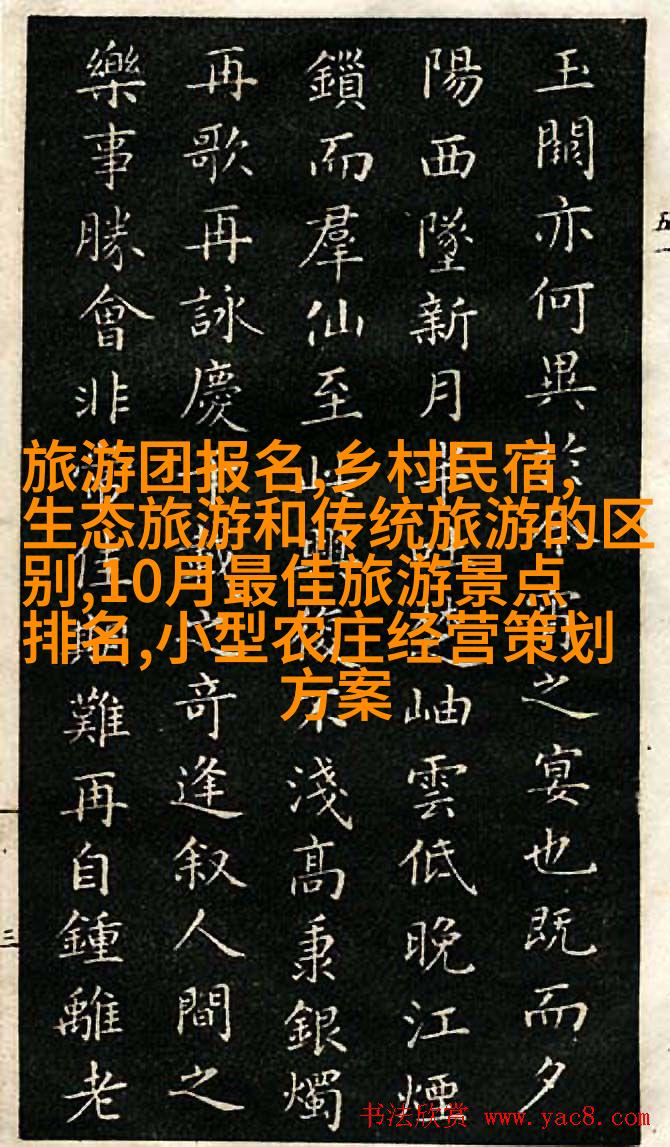 玉關亦何異於之宴也既而夕
陽西墜新月岫雲低晚江煙
鎖而羣仙至興復不淺高秉銀燭
再歌再詠慶千載之奇逢叙人間之
樂事勝會非常佳期難再自鍾離老
旅游团报名,乡村民宿,
生态旅游和传统旅游的区
别,10月最佳旅游景点
排名,小型农庄经营策划
方案
五
三
书法欣赏 www.yac8.com